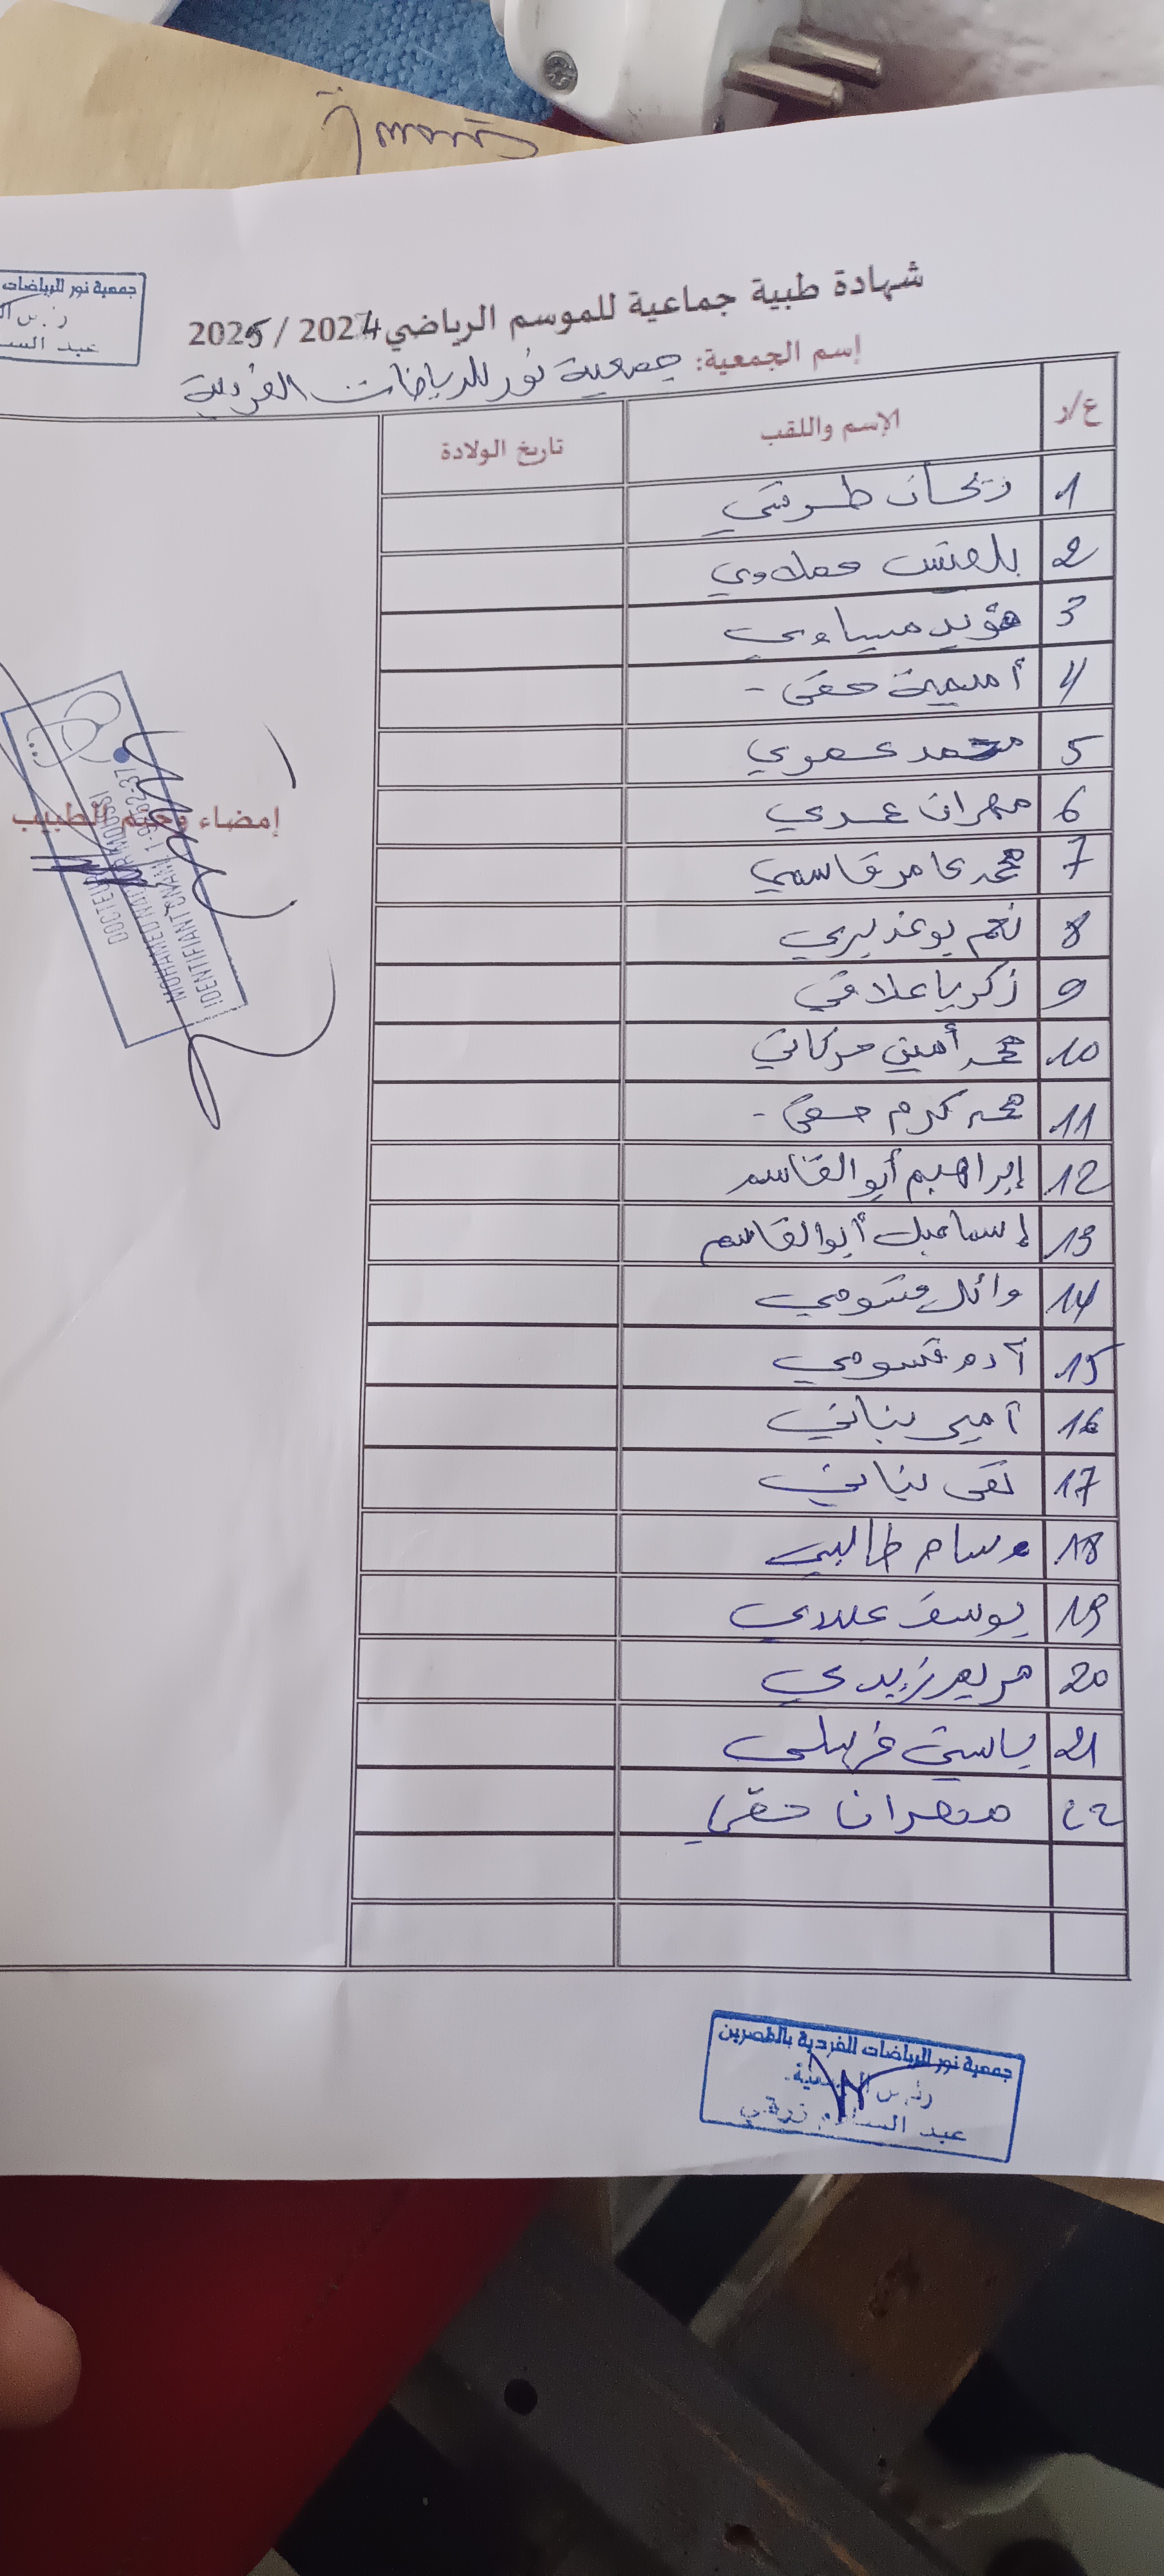 جمعية نور للرياضات
عبد الس
شهادة طبية جماعية للموسم الرياضي 2024 / 2025
إسم الجمعية: جمعية نور للرياضات الفردية
ع/ر الإسم واللقب تاريخ الولادة
1
2 بلقيس
3 مؤيد عيساوي
4 أميمة حقي -
5 محمد
6 مهران عمري
7 محمد عامر قاسمي
8 بوعذيري
9 زكريا علاقي
10 محمد أمين حركاتي
11 محمد كرم حقي -
12 إبراهيم أبو القاسم
13 إسماعيل أبو القاسم
14 وائل قسومي
15 آدم قسومي
16 أمير بناني
17 تقى بناني
18 وسام طالبي
19 يوسف
20 مريم زيدي
21 ياسين
22 مهران حقي
إمضاء وختم الطبيب
DOCTEUR
MOHAMED
IDENTIFIANT CNAM
جمعية نور للرياضات الفردية بالقصرين
رئيس الجمعية
عبد السلام زرقي